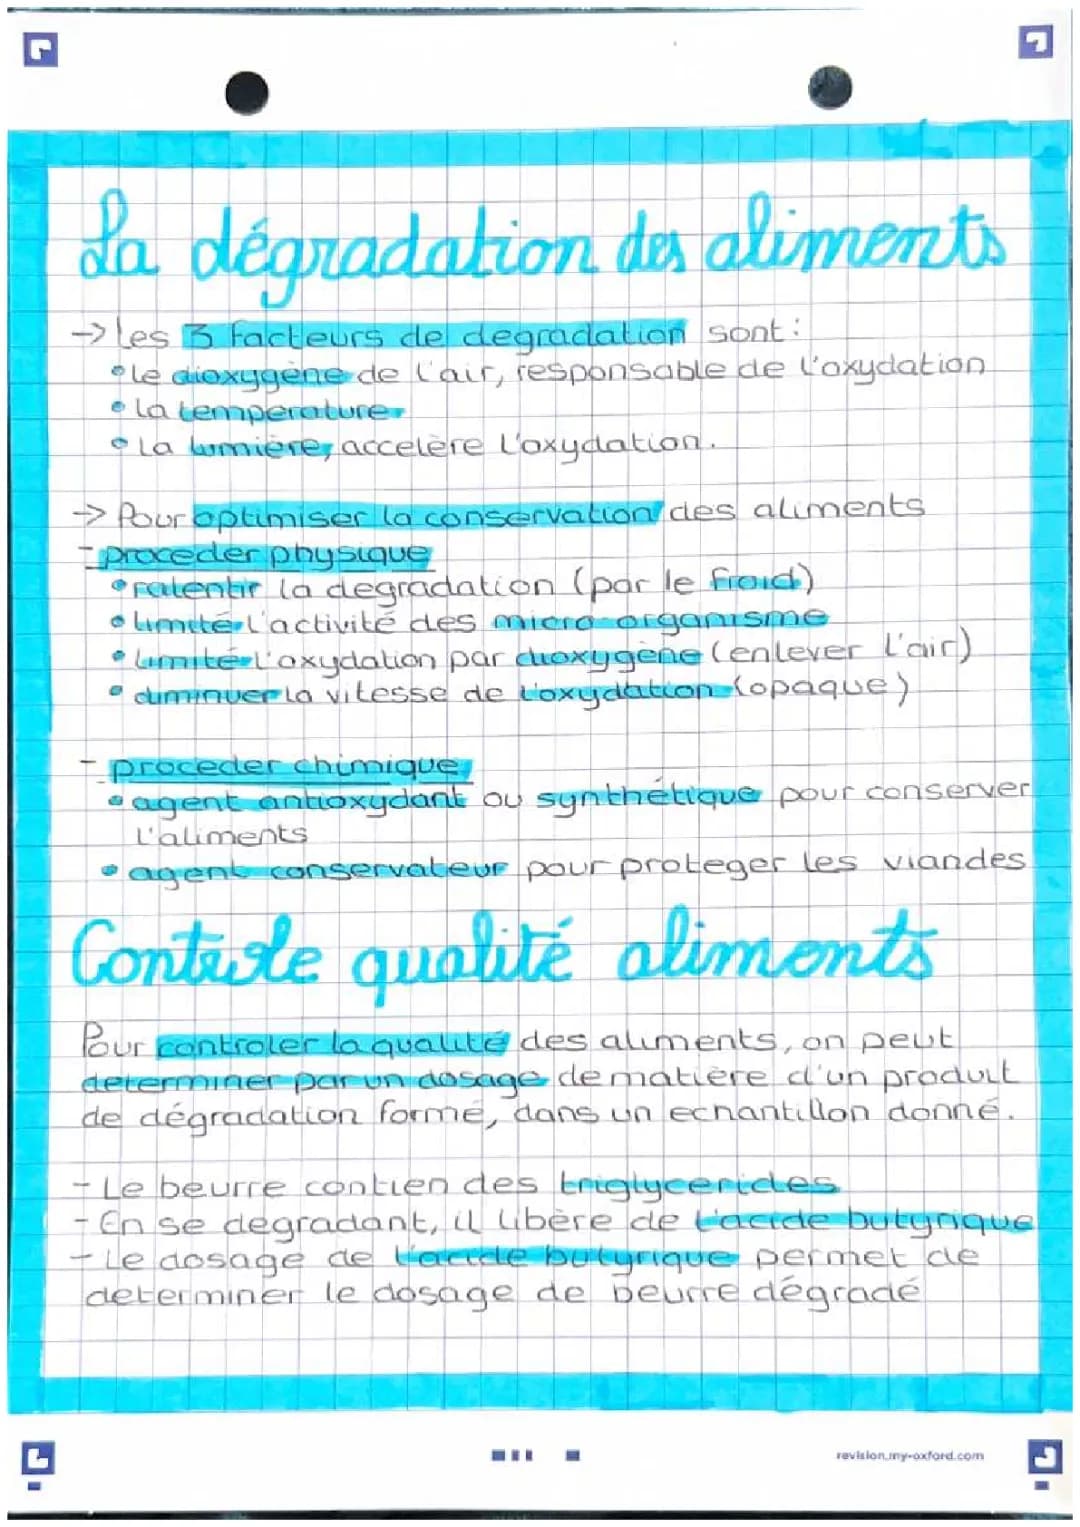 La dégradation des aliments
→ les 3 facteurs de degradation sont :
• le dioxygène de l'air, responsable de l'oxydation
• la temperature
• la lumière, accelère l'oxydation.
→ Pour optimiser la conservation des aliments
- proceder physique
• ralentir la degradation (par le froid)
• limité l'activité des micro-organisme
• limité l'oxydation par dioxygène (enlever l'air)
• diminuer la vitesse de l'oxydation (opaque)
- proceder chimique
• agent antioxydant ou synthétique pour conserver
l'aliments
• agent conservateur pour proteger les viandes
Controle qualité aliments
Pour controler la qualité des aliments, on peut
determiner par un dosage de matière d'un produit
de dégradation formé, dans un echantillon donné.
- Le beurre contien des triglycerides
- En se degradant, il libère de l'acide butyrique
- Le dosage de l'acide butyrique permet de
determiner le dosage de beurre dégradé
revision.my-oxford.com